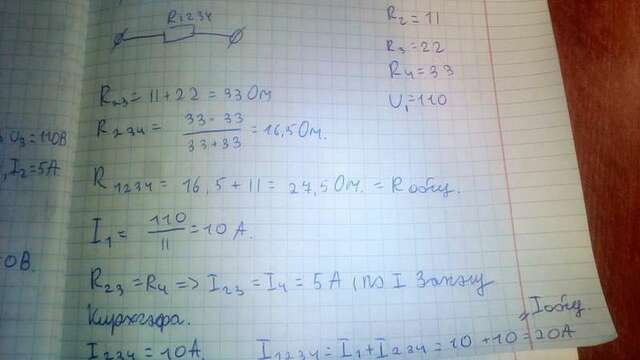 R1234
R₂ = 11
R₃ = 22
R₄ = 33
U₁ = 110
R₂₃ = 11 + 22 = 33 Ом
R₂₃₄ = 33 · 33 / 33 + 33 = 16,5 Ом.
U₃ = 110В
I₂ = 5А
R₁₂₃₄ = 16,5 + 11 = 27,5 Ом. = R общ.
I₁ = 110 / 11 = 10 А.
0В.
R₂₃ = R₄ => I₂₃ = I₄ = 5 А, по I Закону
Кирхгофа.
I₂₃₄ = 10А.
I₁₂₃₄ = I₁ + I₂₃₄ = 10 + 10 = 20А
= Iобщ.